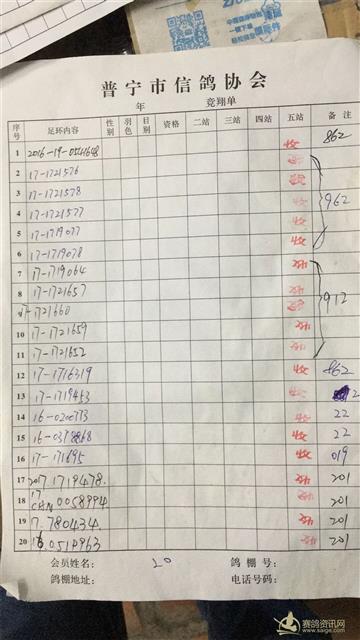 普宁市信鸽协会
年 竞翔单
序号 足环内容 性别 羽色 目别 资格 二站 三站 四站 五站 备注
1 2016-19-0541648 收 862
2 17-1721576
3 17-1721578
4 17-1721577 收 962
5 17-1719077 收
6 17-1719078 收
7 17-1719064
8 17-1721657 912
9 17-1721660
10 17-1721659
11 17-1721652
12 17-1716319 收 862
13 17-1719453 收
14 16-0200773 收 22
15 16-0378868 收 22
16 17-171695 收 019
17 2017.1719478. 201
18 17 CHN 0058994 201
19 17.780434. 201
20 0514963 201
会员姓名: 20 鸽棚号:
鸽棚地址: 电话号码:
赛鸽资讯网
www.saige.com